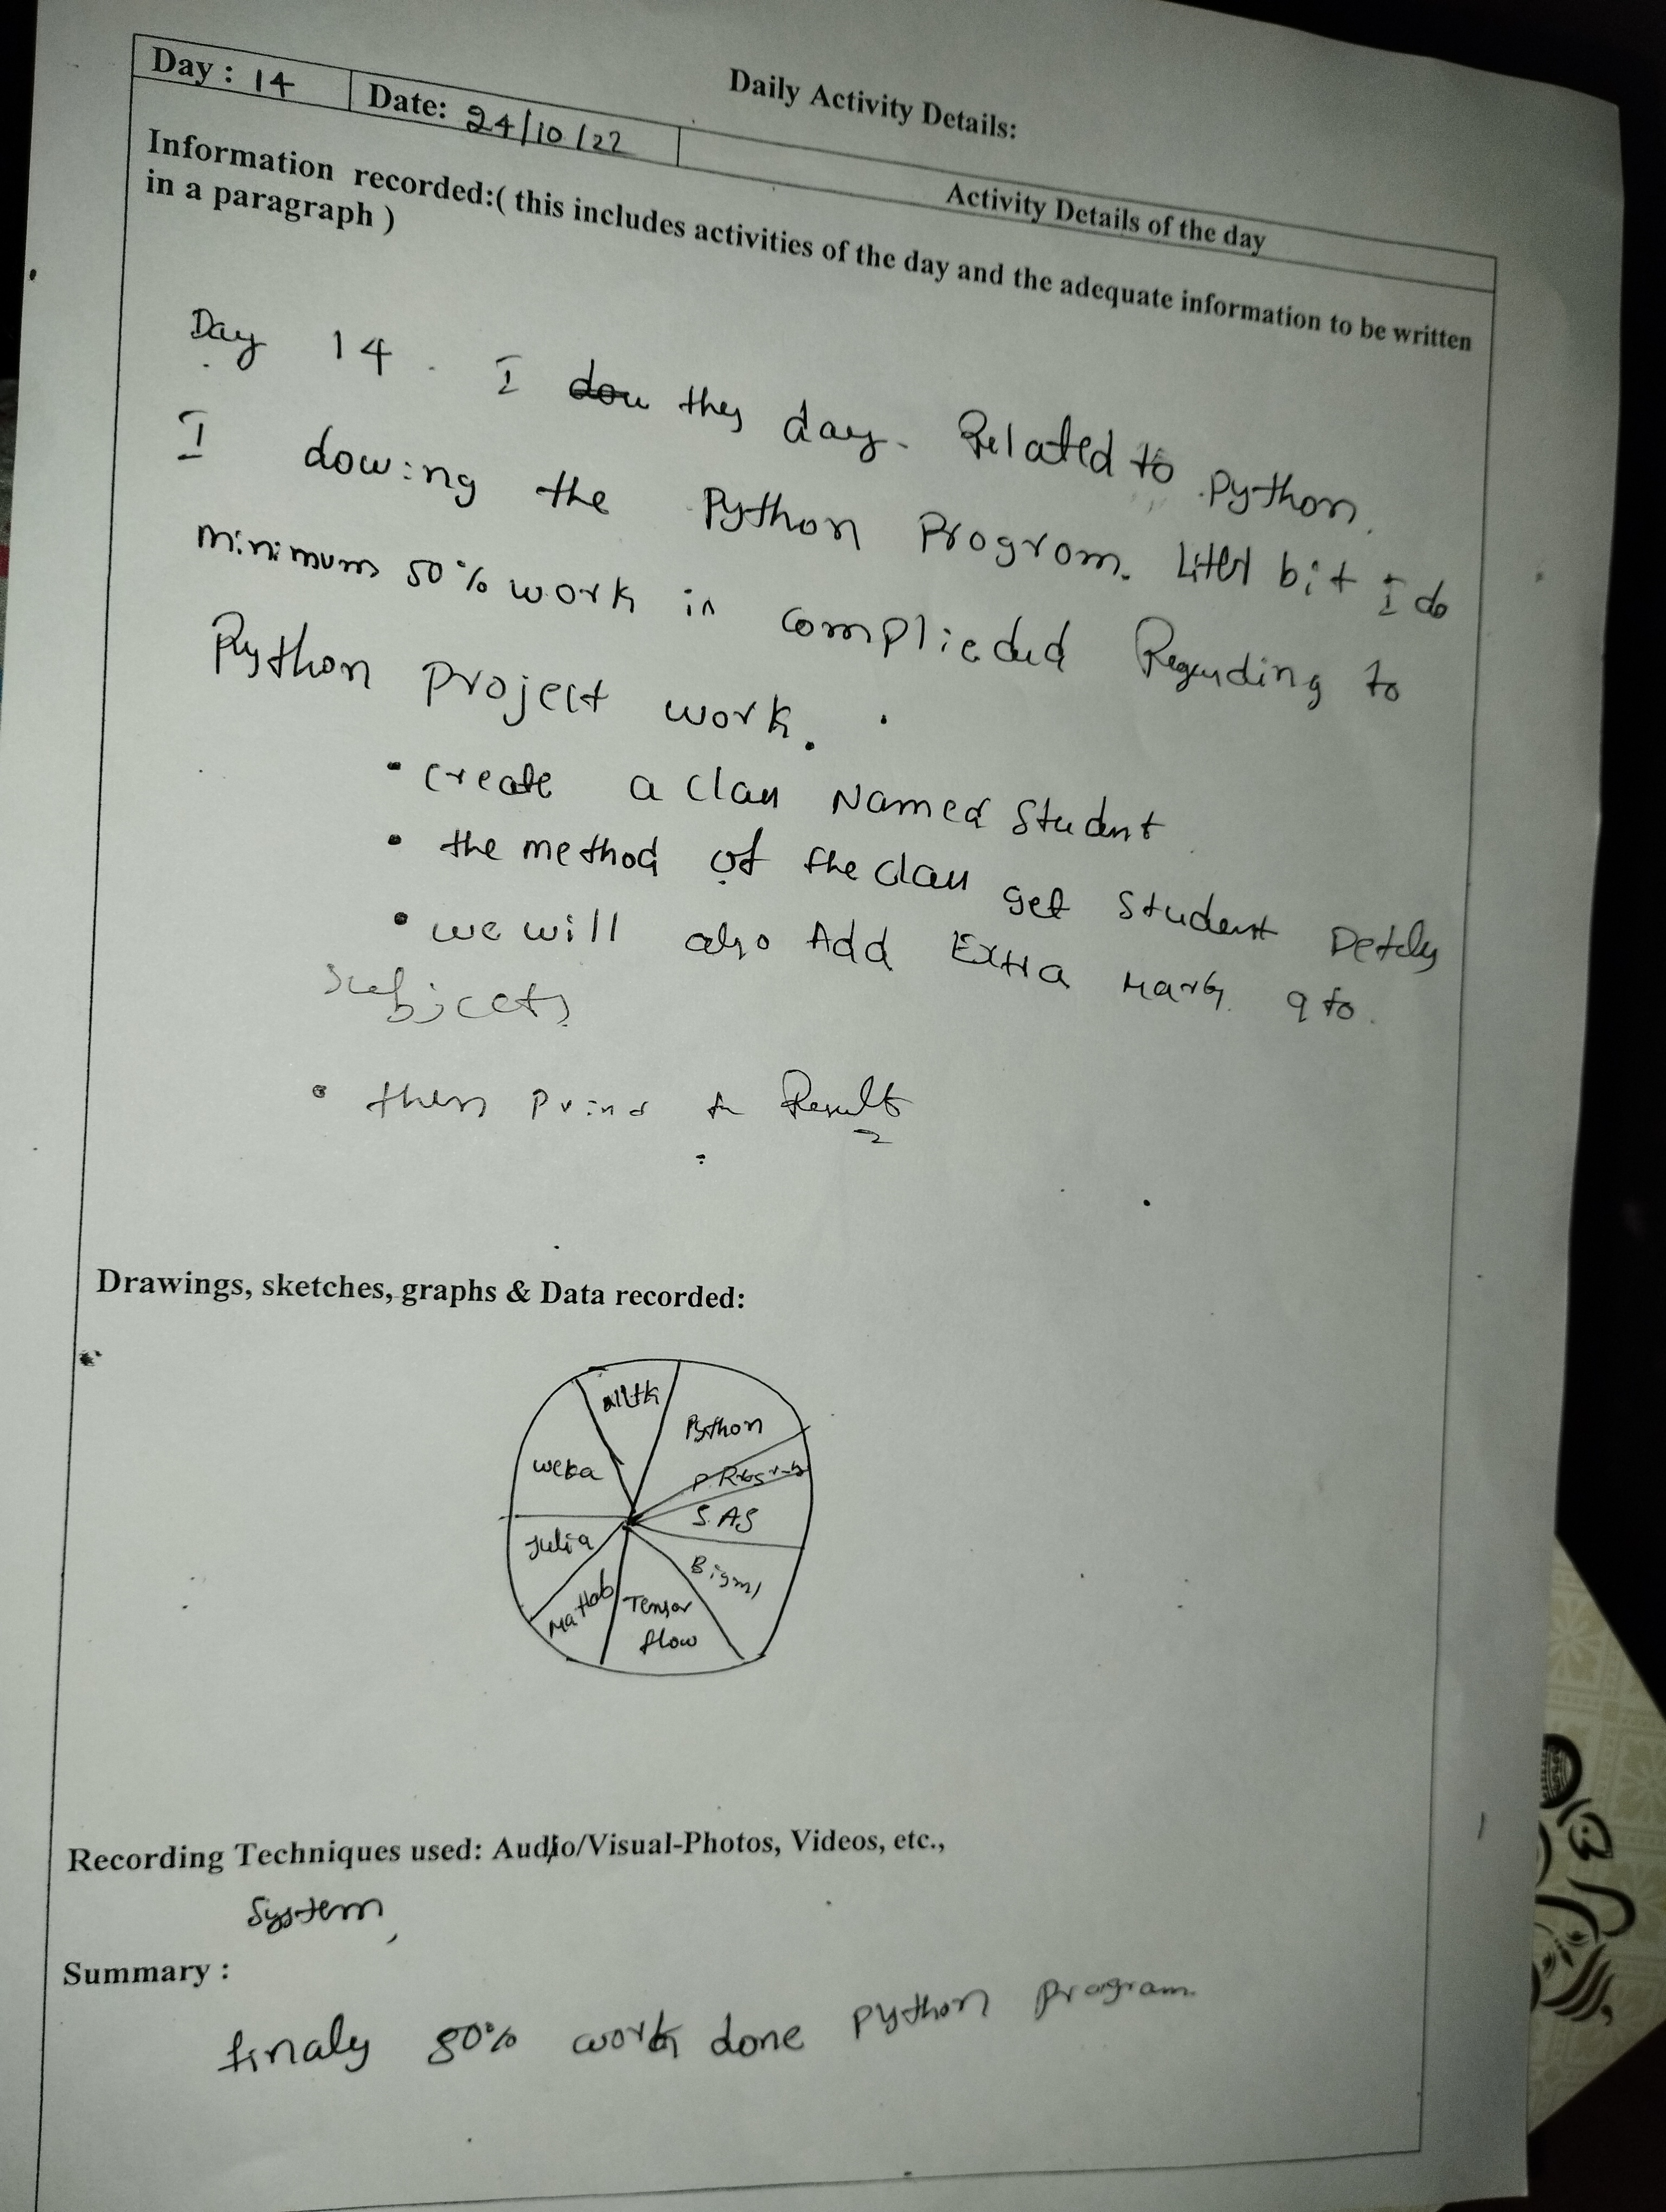 Daily Activity Details:
Day : 14
Date: 24/10/22
Activity Details of the day
Information recorded:( this includes activities of the day and the adequate information to be written
in a paragraph )
Day 14 . I they day. Related to Python.
I dowing the Python Program. Litet bit I do
minimum 50% work in complieded Regarding to
Python project work.
• create a class Named Student
• the method of the class get Student Details
• we will also Add Extra Marks to
Subjects
• then Print Result
Drawings, sketches, graphs & Data recorded:
nltk
Python
Weka
S.AS
Julia
Bigml
Matlab
Tensor
flow
Recording Techniques used: Audio/Visual-Photos, Videos, etc.,
System
Summary :
finaly 80% work done Python Program.